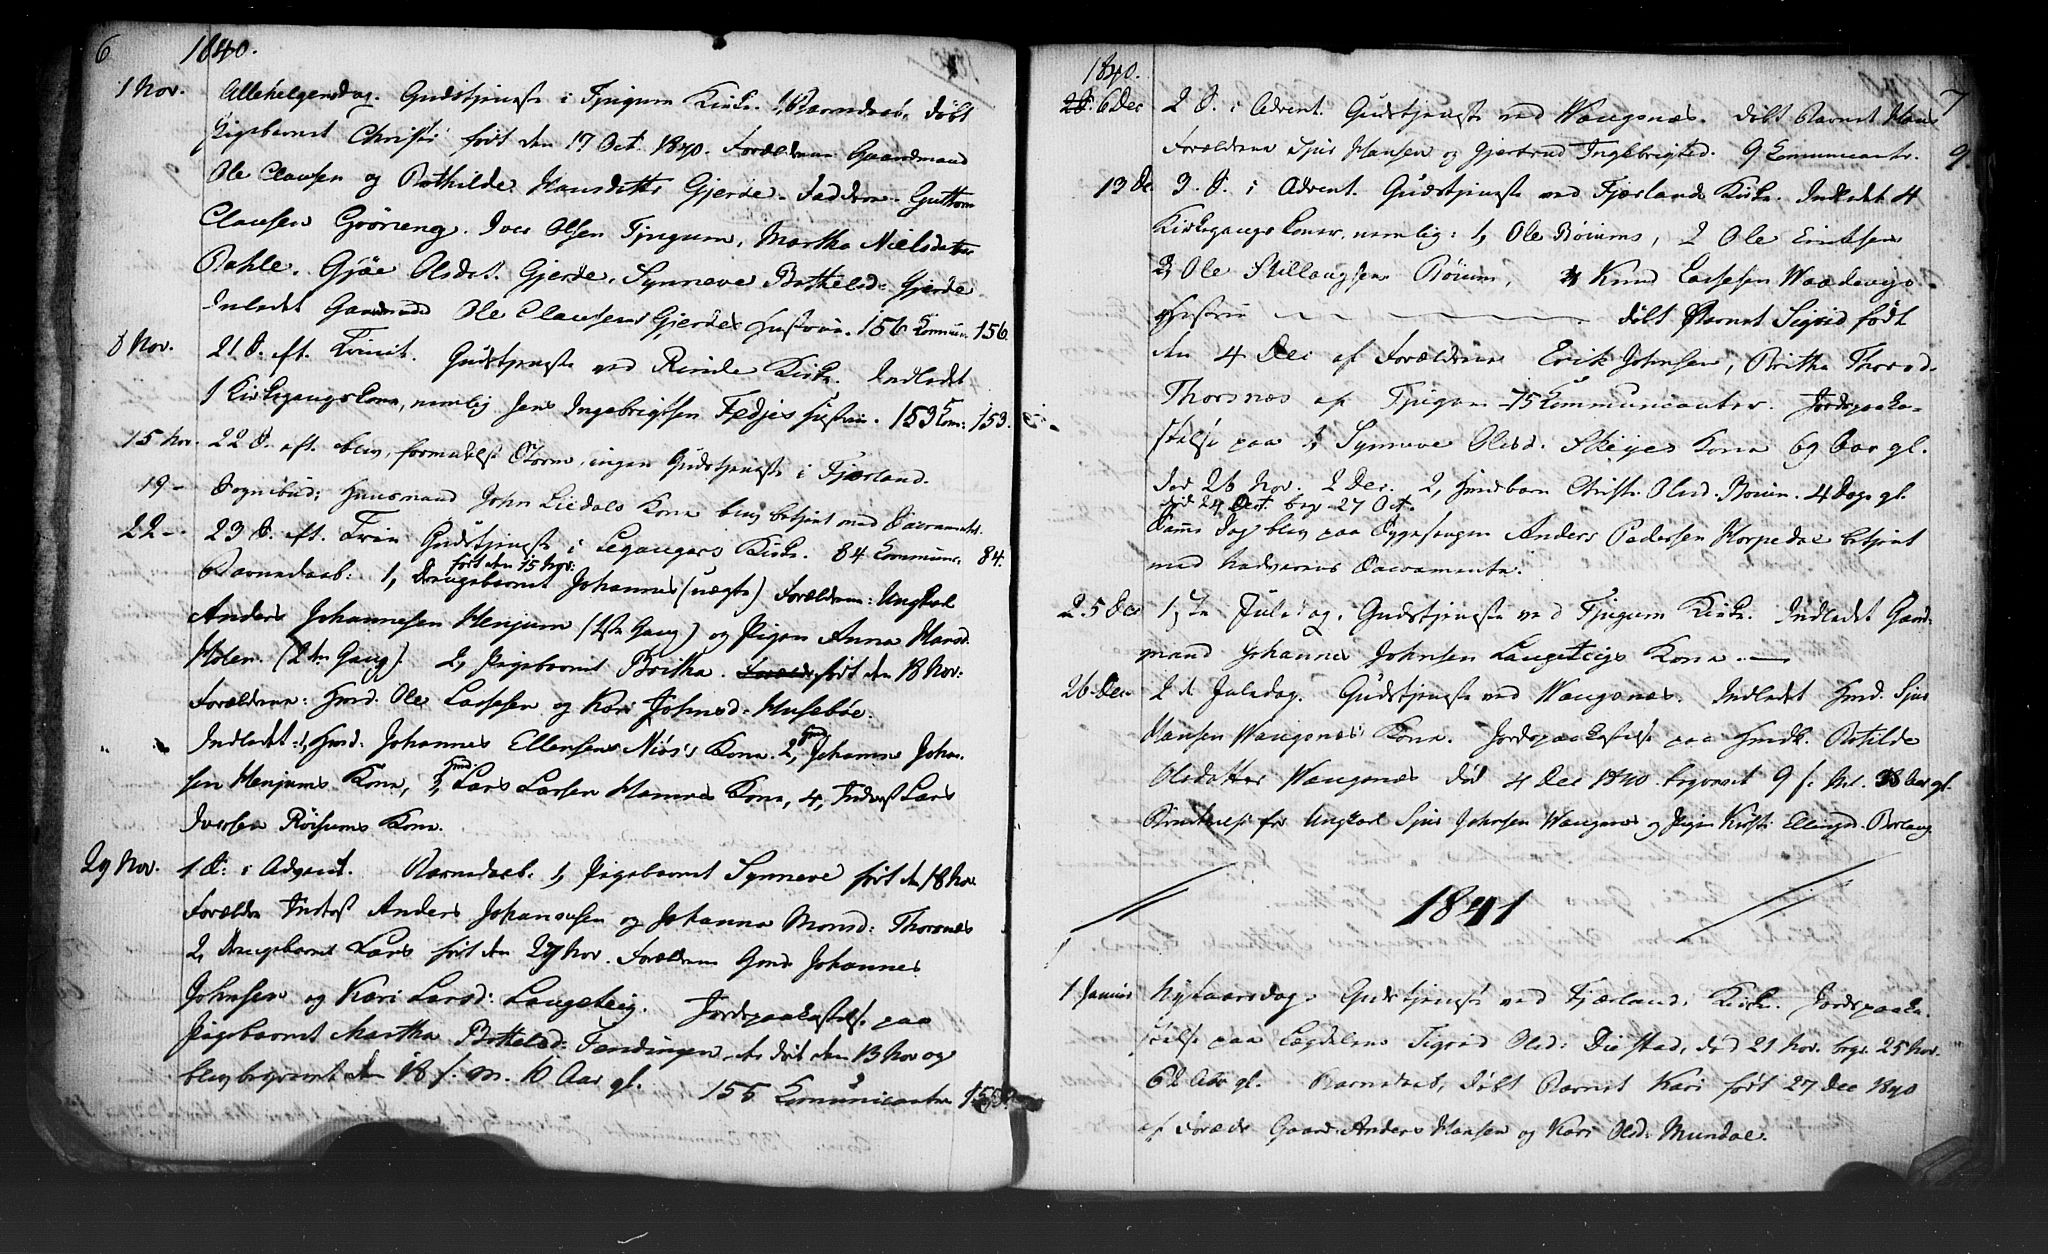 6
1840.
1 Nov. Allehelgensdag. Gudstjeneste i Tjugum Kirke. Barnedaab, døbt
Pigebarnet Christi født den 17 Oct. 1840. Forældrene Gaardmand
Ole Clausen og Bothilde Hansdatter Gjerde. Faddere Guttorm
Clausen Grøneng. Iver Olsen Tjugum, Martha Nielsdatter
Bahle. Gjøe Olsdt. Gjerde, Synneve Botholvd: Gjerde
Indledet Gaardmd Ole Clausens Gjerdes Hustru. 156 Komun. 156.
8 Nov. 21 S. eft. Trinit. Gudstjeneste ved Rinde Kirke. Indledet
1 Kirkegangskone, nemlig Jens Ingebrigtsen Fedjes Hustru. 153 Kom: 153.
15 Nov. 22 S. eft. blev, formedelst Storm, ingen Gudstjeneste i Fjærland.
19 - Sognebud: Huusmand John Liedals Kone blev betjent med Sacramentet.
22 - 23 S. eft. Trin Gudstjeneste i Leganger Kirke. 84 Kommun. 84.
født den 15 Nov:
Barnedaab: 1, Drengebarnet Johannes (uægte) Forældrene: Ungkarl
Anders Johannesen Henjum (1ste Gang) og Pigen Anna Hansd.
Holen. (2den Gang). 2, Pigebarnet Britha. født den 18 Nov:
Forældrene: Hmd. Ole Lassesen og Kari Johnsd: Husebøe:
Indledet: 1, Hmd: Johannes Ellensens Niøs's Kone. 2, Hmd Johannes Johan-
sen Henjums Kone, 3, Hmd Lars Larsen Hamres Kone, 4, Inderst Lars
Iversen Røisums Kone.
29 Nov. 1 S: i Advent. Barnedaab: 1, Pigebarnet Synneve født den 18 Nov
Forældre Inderst Anders Johannesen og Johanna Monsd: Thorsnæs
2, Drengebarnet Lars født den 27 Nov. Forældrene Gmd Johannes
Johnsen og Kari Larsd: Langeteig. Jordspaakastelse paa
Pigebarnet Martha Bottolvd: død den 13 Nov og
blev begravet den 18 s. M. 10 Aar gl. 155 Komunicanter 155
1840.
7
6 Dec 2 S. i Advent. Gudstjeneste ved Wangsnæs. Døbt Barnet Hans
Forældrene Sjur Hansen og Gjertrud Ingebrigtsd. 9 Comunicanter. 9.
13 De 3. S. i Advent. Gudstjeneste ved Fjærlands Kirke. Indledet 4
Kirkegangskoner, nemlig: 1, Ole Bøiums, 2 Ole Eriksen
3, Ole Bøium, 4 Knud Lassesen
Hustru døbt Barnet Sigrid født
den 4 Dec af Forældrene Erik Johnsen, Britha Thorsd.
Thorsnæs af Tjugum 75 Kommunicanter. Jordspaaka-
stelse paa 1, Synneve Olsd. Skejes Kone 69 Aar gl.
død 26 Nov. 2 Dec. 2, Christi Olsd. Bøium. 4 Dage gl.
død 24 Oct. beg 27 Oct.
Samme Dag blev paa Sygesengen Anders Pedersen Horpedal betjent
med Nadverens Sacramente.
25 Dec 1ste Juledag. Gudstjeneste ved Tjugum Kirke. Indledet Gaard-
mand Johannes Johnsen Langeteigs Kone.
26 Dec 2d Juledag. Gudstjeneste ved Wangsnæs. Indledet Hmd. Sjur
Hansen Wangsnæs's Kone. Jordspaakastelse paa Hmdk. Botilde
Olsdatter Wangsnæs død 4 Dec 1840 begravet 9 s. M. 38 Aar gl.
for Ungkarl Sjur Johnsen Wangsnæs og Pigen Kirsti Ellingsd.
1841
1 Januar Nytaarsdag. Gudstjeneste ved Fjærlands Kirke. Jordspaaka-
stelse paa Sigrid Olsd: Distad, død 21 Nov. begr. 25 Nov.
62 Aar gl. Barnedaab, døbt Barnet Kari født 27 Dec 1840
af Forældre Gaard. Anders Hansen og Kari Olsd: Mundal.